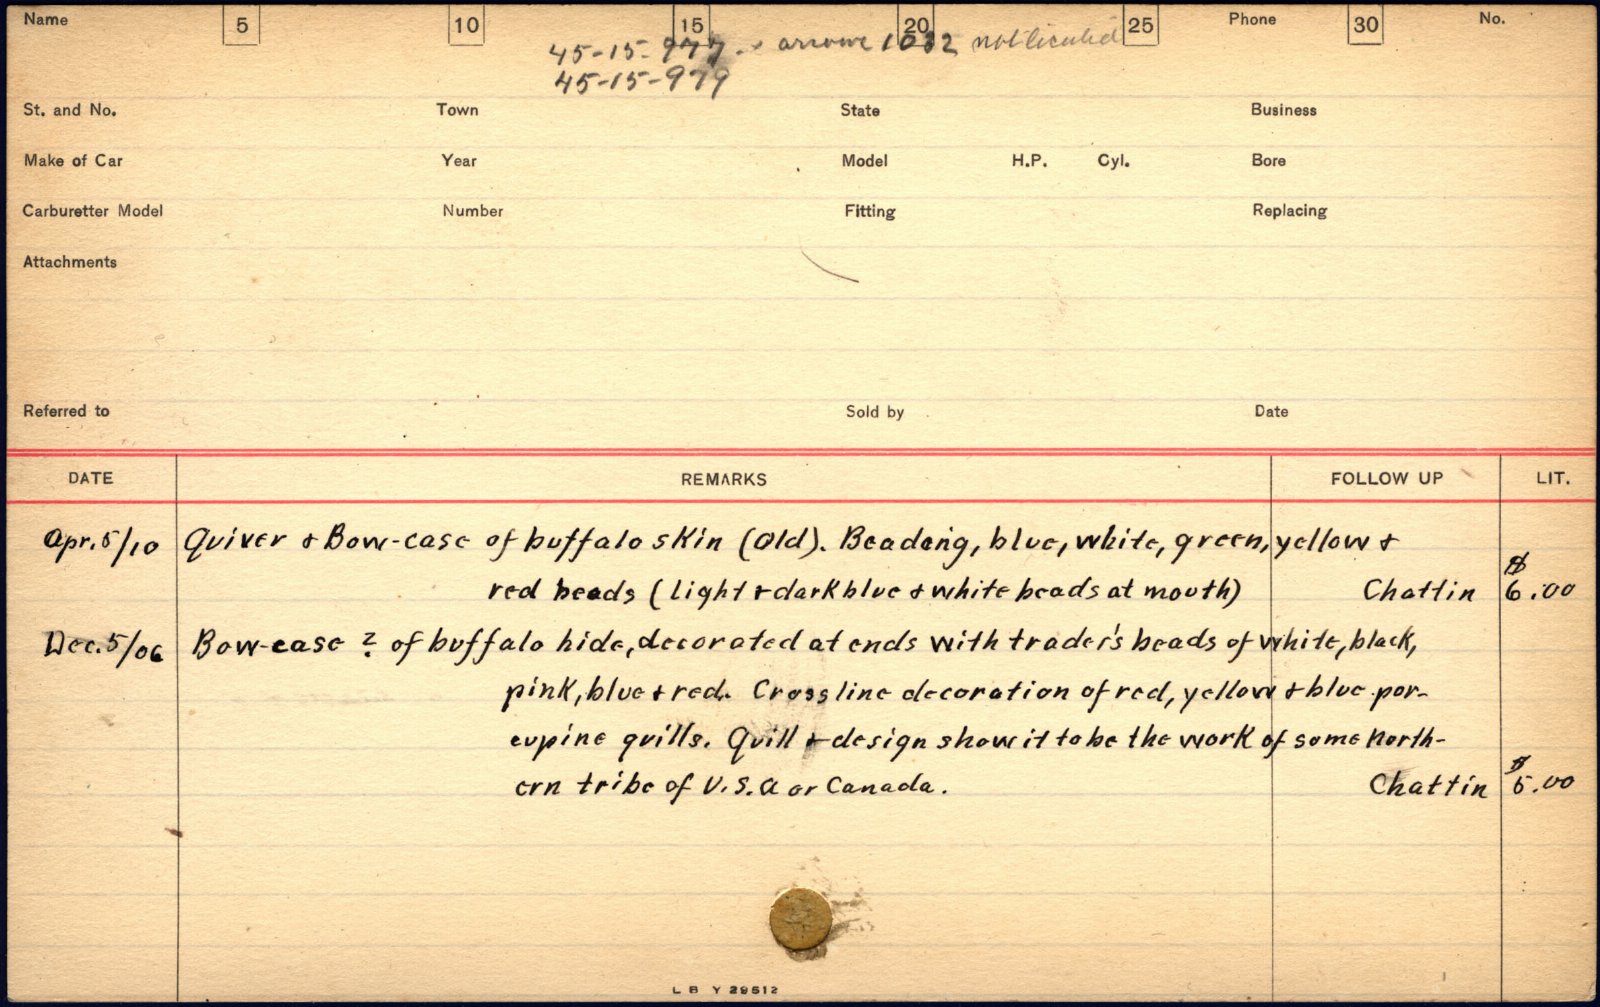 Name 5 10 15 20 25 Phone 30 No.
45-15-977 - + arrow 1032 not located
45-15-979
St. and No. Town State Business
Make of Car Year Model H.P. Cyl. Bore
Carburetter Model Number Fitting Replacing
Attachments
Referred to Sold by Date
DATE REMARKS FOLLOW UP LIT.
Apr. 5/10 Quiver + Bow-case of buffalo skin (old). Beading, blue, white, green, yellow +
red beads (light + dark blue + white beads at mouth) Chattin $6.00
Dec. 5/06 Bow-case ? of buffalo hide, decorated at ends with trader's beads of white, black,
pink, blue + red. Cross line decoration of red, yellow + blue por-
cupine quills. Quill + design show it to be the work of some North-
ern tribe of U.S.A or Canada. Chattin $5.00
L B Y 29512